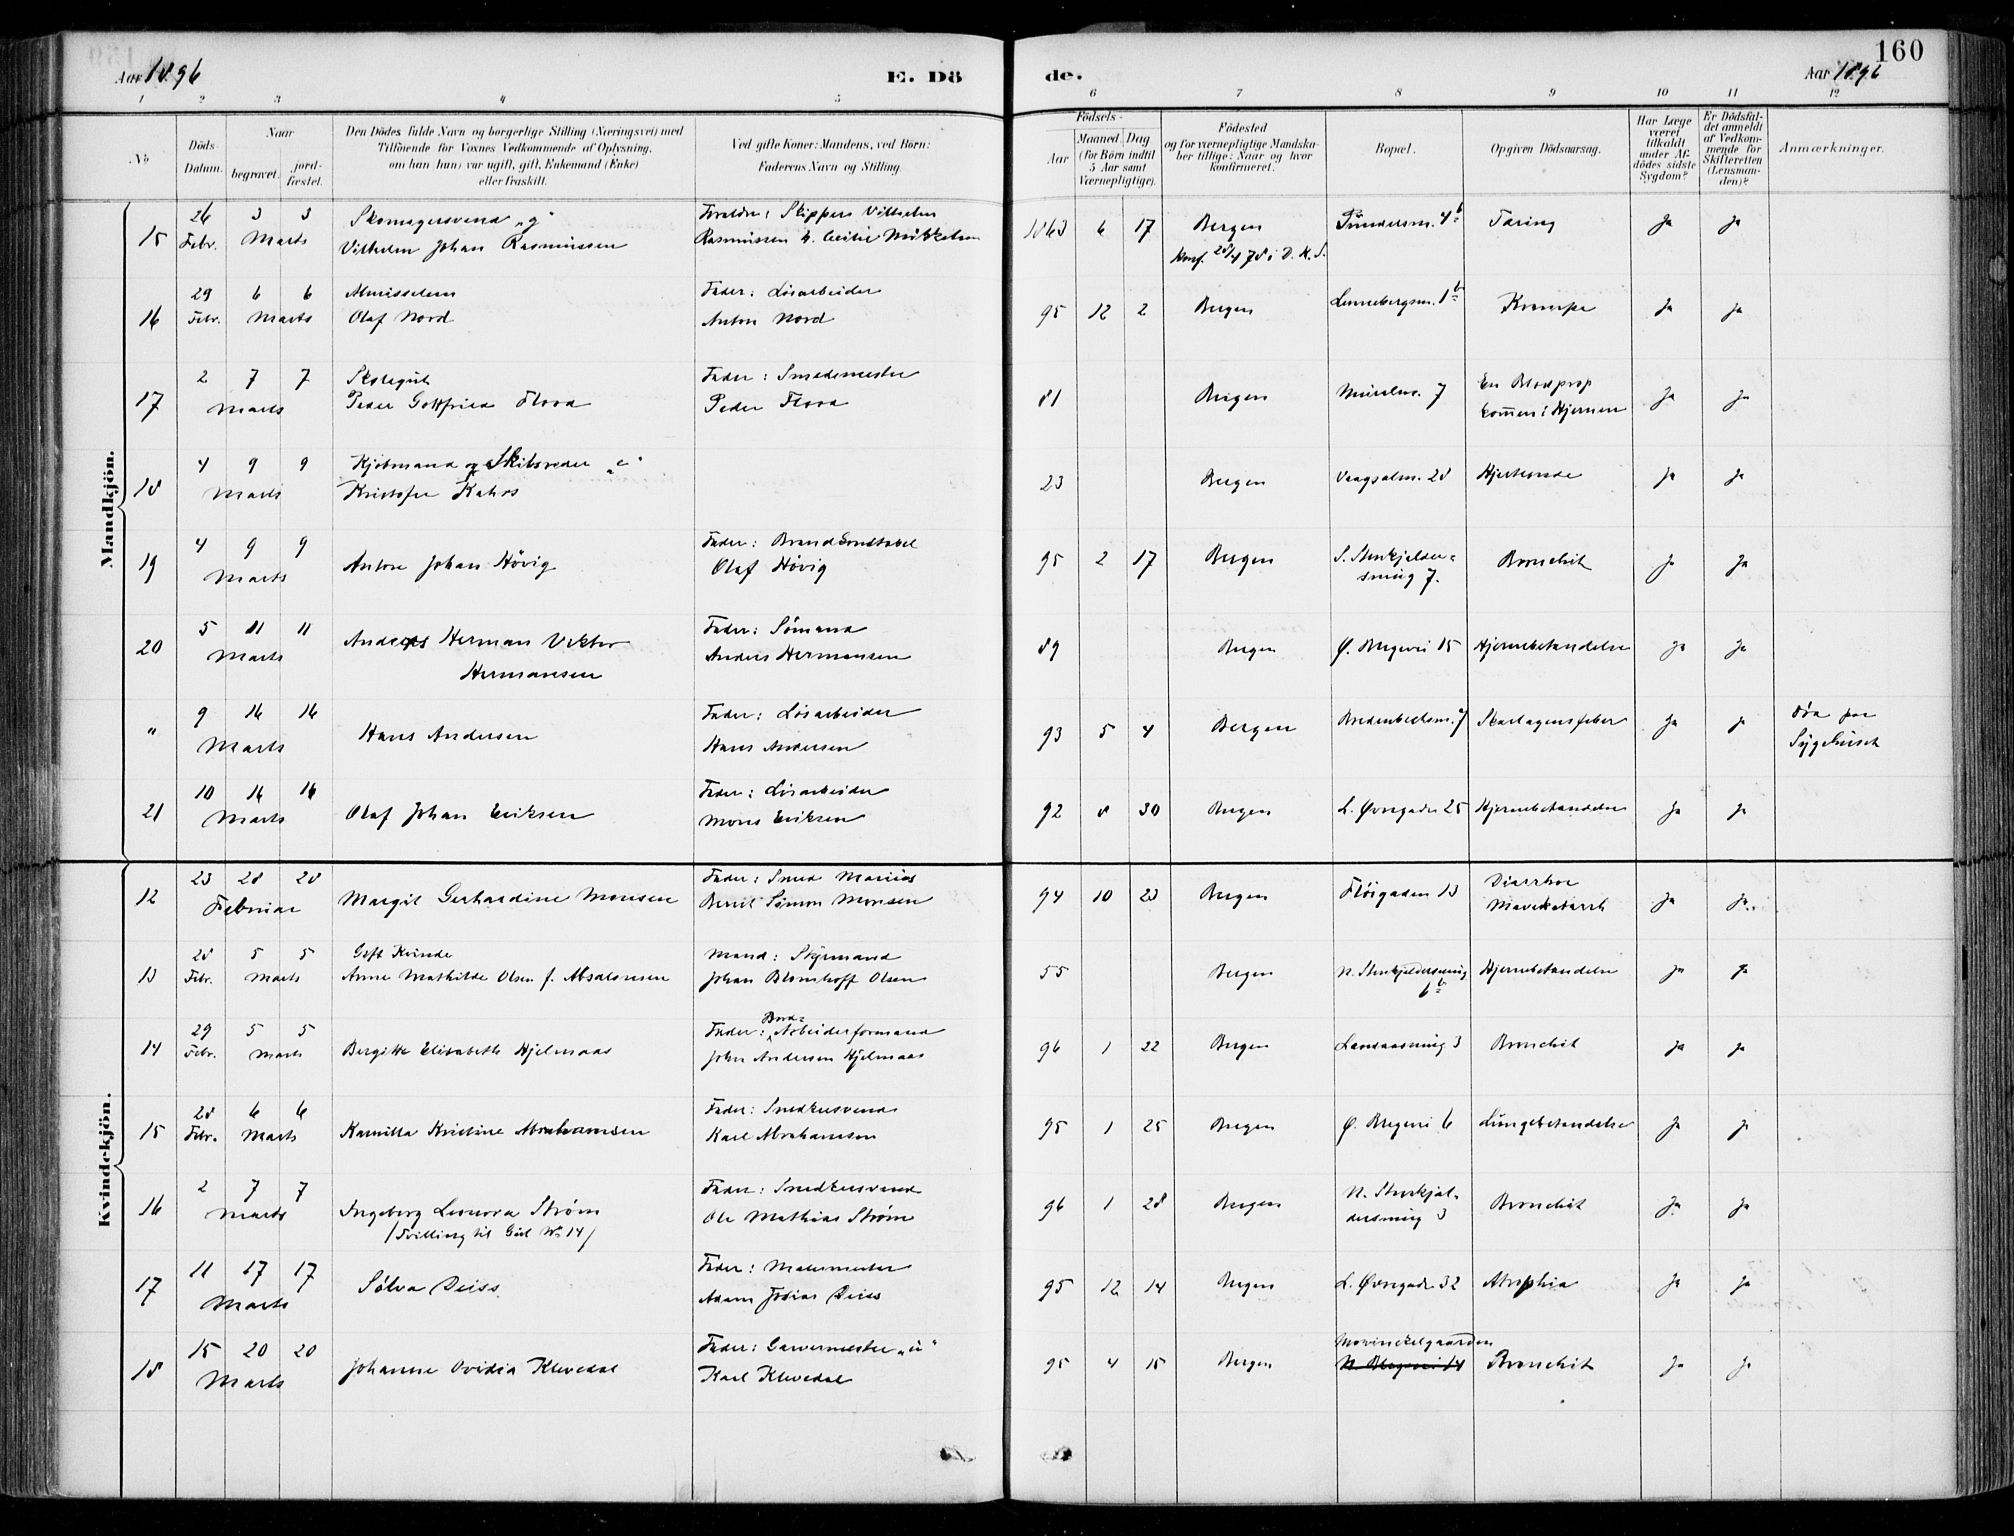 160
Aar 1896
E. Dö
de.
Aar 1896
1 2 3 4 5 6 7 8 9 10 11 12
No
Döds Datum.
Naar
begravet.
jord-fæstet.
Den Dödes fulde Navn og borgerlige Stilling (Næringsvei) med
Tilföiende for Voxnes Vedkommende af Oplysning,
om han (hun) var ugift, gift, Enkemand (Enke)
eller fraskilt.
Ved gifte Koner: Mandens, ved Börn:
Faderens Navn og Stilling.
Födsels-
Aar
Maaned. Dag
(for Börn indtil
5 Aar samt
Værnepligtige).
Födested
og for værnepligtige Mandska-
ber tillige: Naar og hvor
konfirmeret.
Bopæl.
Opgiven Dödsaarsag.
Har Læge
været
tilkaldt
under Af-
dödes sidste
Sygdom?
Er Dödsfal-
det anmeldt
af Vedkom-
mende for
Skifteretten
(Lensman-
den)?
Anmærkninger.
Mandkjön.
15 26 Febr. 3 3 Marts Skomagersvend „g“
Vilhelm Johan Rasmussen
Foreldre: Skipper Vilhelm
Rasmussen & Cecilie Mikkelsen
1863 6 17 Bergen
Konf. 28/4 78 i D. K. S.
4 b Tæring Ja Ja
16 29 Febr. 6 6 Marts Almisselem
Olaf Nord
Fader: Løsarbeider
Anton Nord
95 12 2 Bergen Lennebergsm. 1 b Krampe Ja Ja
17 2 7 7 Marts Skolegut
Peder Gottfried Flood
Fader: Smedemester
Peder Flood
81 Bergen Muralm. 7 En Blodprop
kommen i Hjernen Ja Ja
18 4 9 9 Marts Kjøbmand og Skibsreder „e“
Kristofer Kahrs
23 Bergen Vaagsalm. 28 Hjerteonde Ja Ja
19 4 9 9 Marts Anton Johan Høvig
Fader: Brandkonstabel
Olaf Høvig
95 2 17 Bergen S. Stenkjelder-
smug 7. Bronchit Ja Ja
20 5 11 11 Marts Anders Herman Viktor
Hermansen
Fader: Sømand
Anders Hermansen
89 Bergen Ø. Bregevei 15 Hjernebetændelse Ja Ja
" 9 16 16 Marts Hans Andersen
Fader: Løsarbeider
Hans Andersen
93 5 4 Bergen Bredenbechsm. 7 Skarlagensfeber Ja Ja Død paa
Sygehuset
21 10 16 16 Marts Olaf Johan Eriksen
Fader: Løsarbeider
Mons Eriksen
92 8 30 Bergen L. Øvregade 25 Hjernebetændelse Ja Ja
Kvindekjön.
12 23 28 28 Februar Margit Gerhardine Monsen
Fader: Smed Marius
Bernt Simon Monsen
94 10 23 Bergen Fløigaden 13 Diarrhoe
Mavekatarrh Ja Ja
13 28 Febr. 5 5 Marts Gift Kvinde
Anne Mathilde Olsen f. Absalonsen
Mand: Styrmand
Johan Blomhoff Olsen
55 Bergen N. Stenkjeldersmug
6 b Hjernebetændelse Ja Ja
14 29 Febr. 5 5 Marts Bergitte Elisabeth Hjelmaas
Fader: Bord-Arbeiderformand
John Andersen Hjelmaas
96 1 22 Bergen Landaasmug 3 Bronchit Ja Ja
15 28 Febr. 6 6 Marts Kamilla Kristine Abrahamsen
Fader: Snedkersvend
Karl Abrahamsen
95 1 25 Bergen Ø. Bregevei 6 Lungebetændelse Ja Ja
16 2 7 7 Marts Ingeborg Leonora Strøm
/Tvilling til Girl No 14/
Fader: Snedkersvend
Ole Mathias Strøm
96 1 28 Bergen N. Stenkjel-
dersmug 3 Bronchit Ja Ja
17 11 17 17 Marts Sølva Deiss
Fader: Malermester
Adam Tobias Deiss
95 12 14 Bergen L. Øvregade 32 Atrophia Ja Ja
18 15 20 20 Marts Johanne Ovidia Klevedal
Fader: Garvermester „u“
Karl Klevedal
95 4 15 Bergen Mowinckelgaarden
N. Blegevei 14 Bronchit Ja Ja